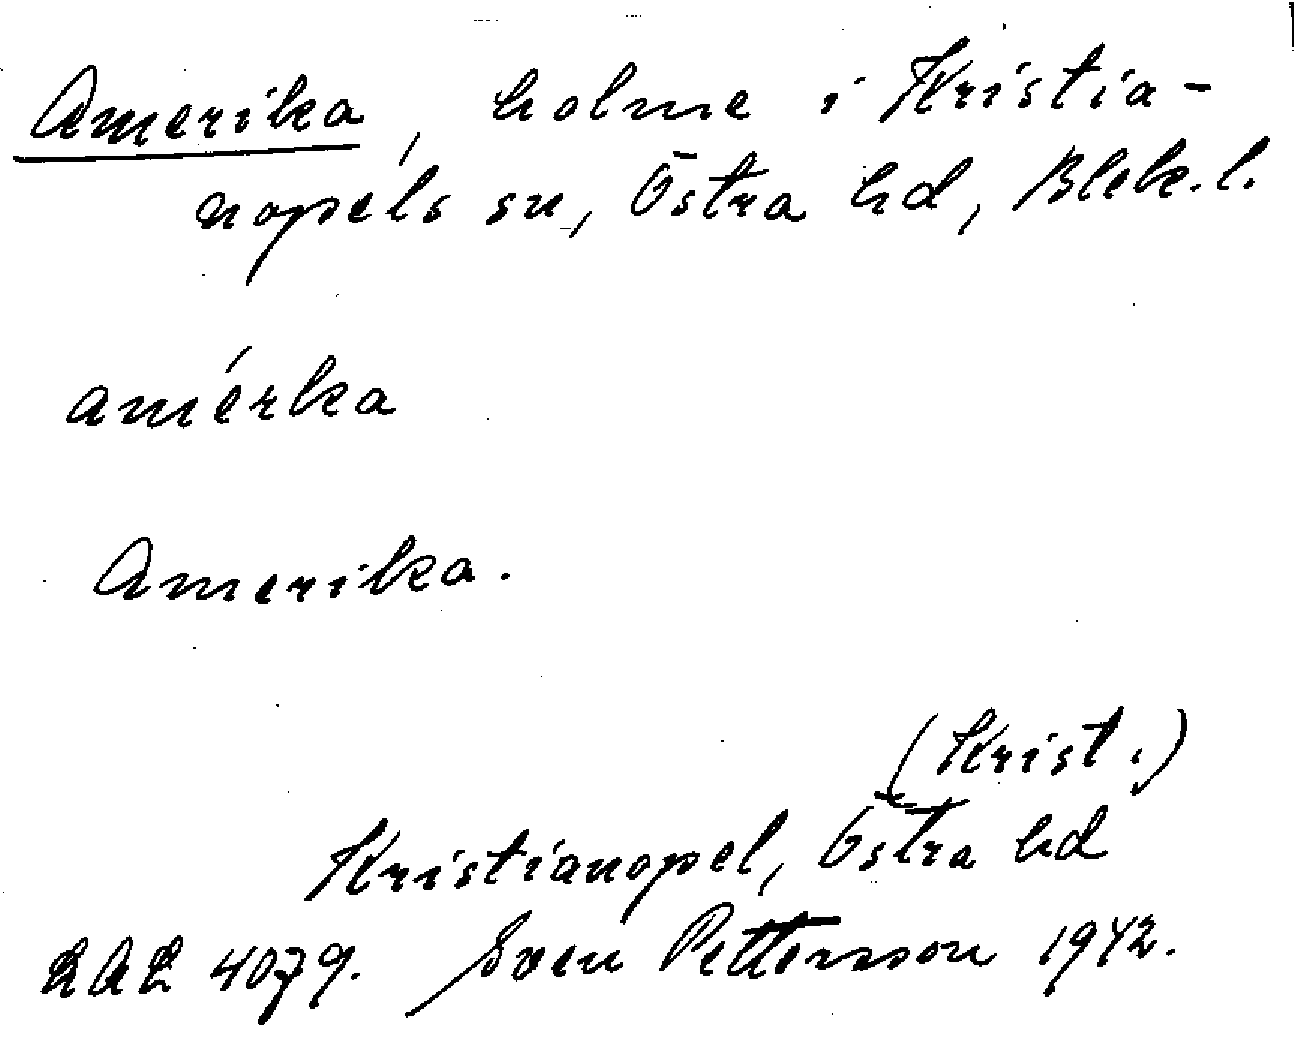 Amerika, holme i Kristia-
nopels sn, Östra hd, Blek. l.
amérka
Amerika.
(Krist.)
Kristianopel, Östra hd
LAL 4079. Sven Pettersson 1942.